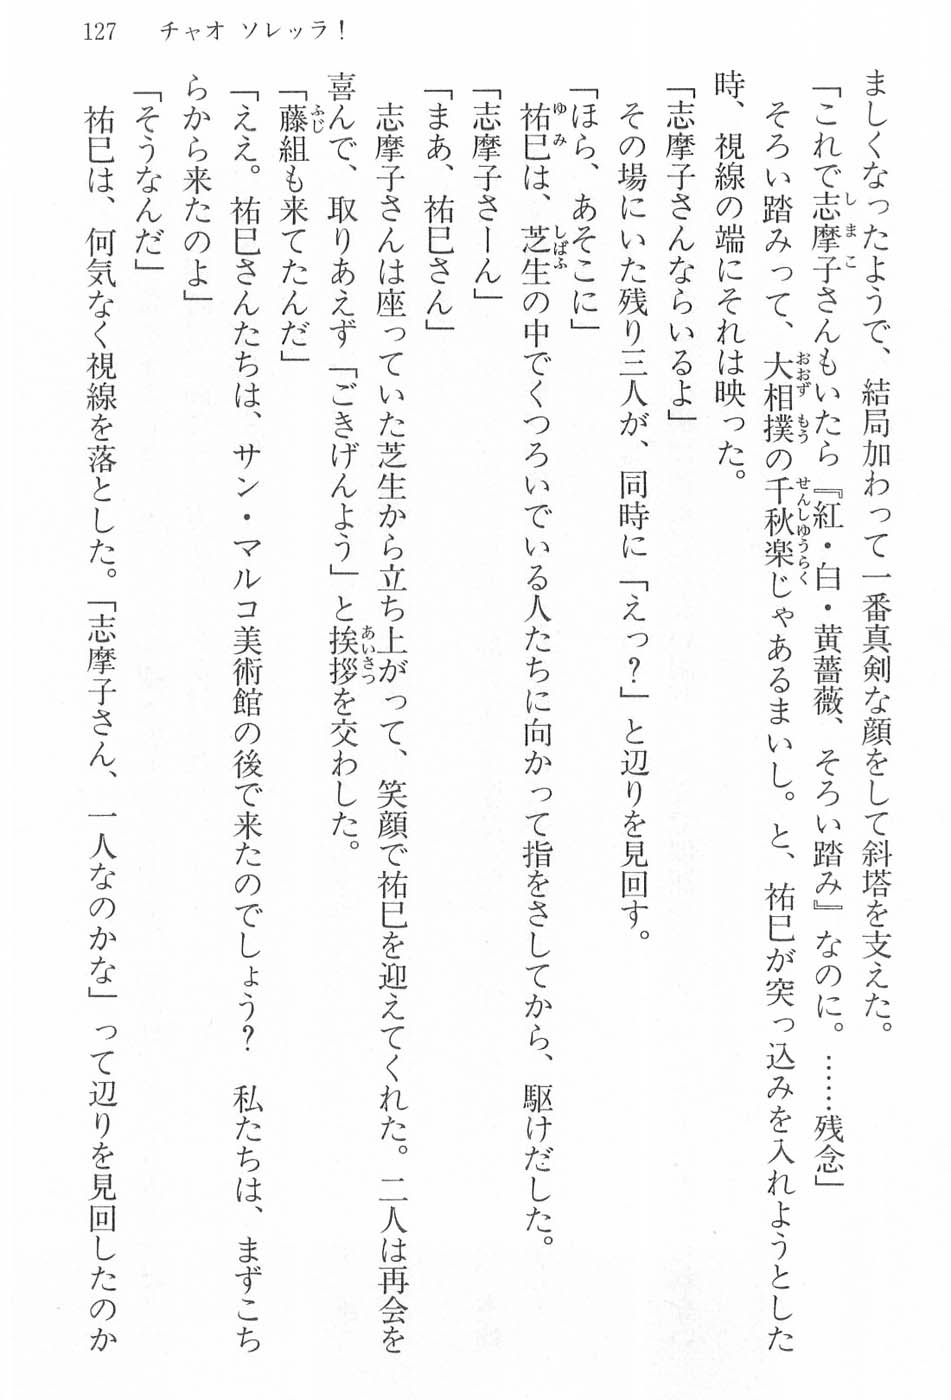 127　チャオ ソレッラ！
ましくなったようで、結局加わって一番真剣な顔をして斜塔を支えた。
「これで志摩子さんもいたら『紅・白・黄薔薇、そろい踏み』なのに。……残念」
　そろい踏みって、大相撲の千秋楽じゃあるまいし。と、祐巳が突っ込みを入れようとした
時、視線の端にそれは映った。
「志摩子さんならいるよ」
　その場にいた残り三人が、同時に「えっ？」と辺りを見回す。
「ほら、あそこに」
　祐巳は、芝生の中でくつろいでいる人たちに向かって指をさしてから、駆けだした。
「志摩子さーん」
「まあ、祐巳さん」
　志摩子さんは座っていた芝生から立ち上がって、笑顔で祐巳を迎えてくれた。二人は再会を
喜んで、取りあえず「ごきげんよう」と挨拶を交わした。
「藤組も来てたんだ」
「ええ。祐巳さんたちは、サン・マルコ美術館の後で来たのでしょう？　私たちは、まずこち
らから来たのよ」
「そうなんだ」
　祐巳は、何気なく視線を落とした。「志摩子さん、一人なのかな」って辺りを見回したのか